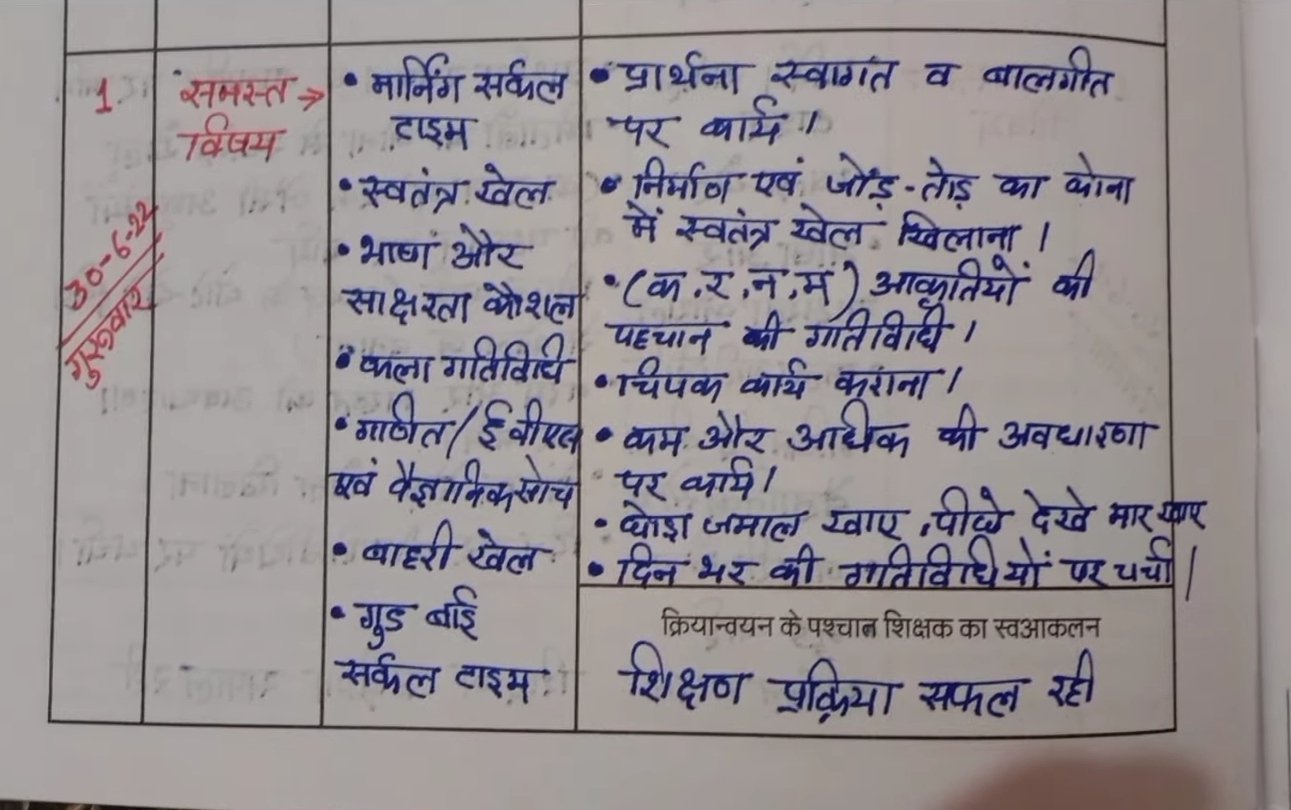 1
समस्त →
विषय
30-6-22
गुरुवार
• मार्निंग सर्कल
टाइम
• स्वतंत्र खेल
• भाषा और
साक्षरता कौशल
• कला गतिविधि
• गणित/ईवीएस
एवं वैज्ञानिक सोच
• बाहरी खेल
• गुड बाई
सर्कल टाइम
• प्रार्थना स्वागत व बालगीत
पर कार्य।
• निर्माण एवं जोड़-तोड़ का कोना
में स्वतंत्र खेल खिलाना।
• (क,र,न,म) आकृतियों की
पहचान की गतिविधि।
• चिपक कार्य कराना।
• कम और अधिक की अवधारणा
पर कार्य।
• कोड़ा जमाल खाए, पीछे देखे मार खाए
• दिन भर की गतिविधियों पर चर्चा।
क्रियान्वयन के पश्चात शिक्षक का स्वआकलन
शिक्षण प्रक्रिया सफल रही